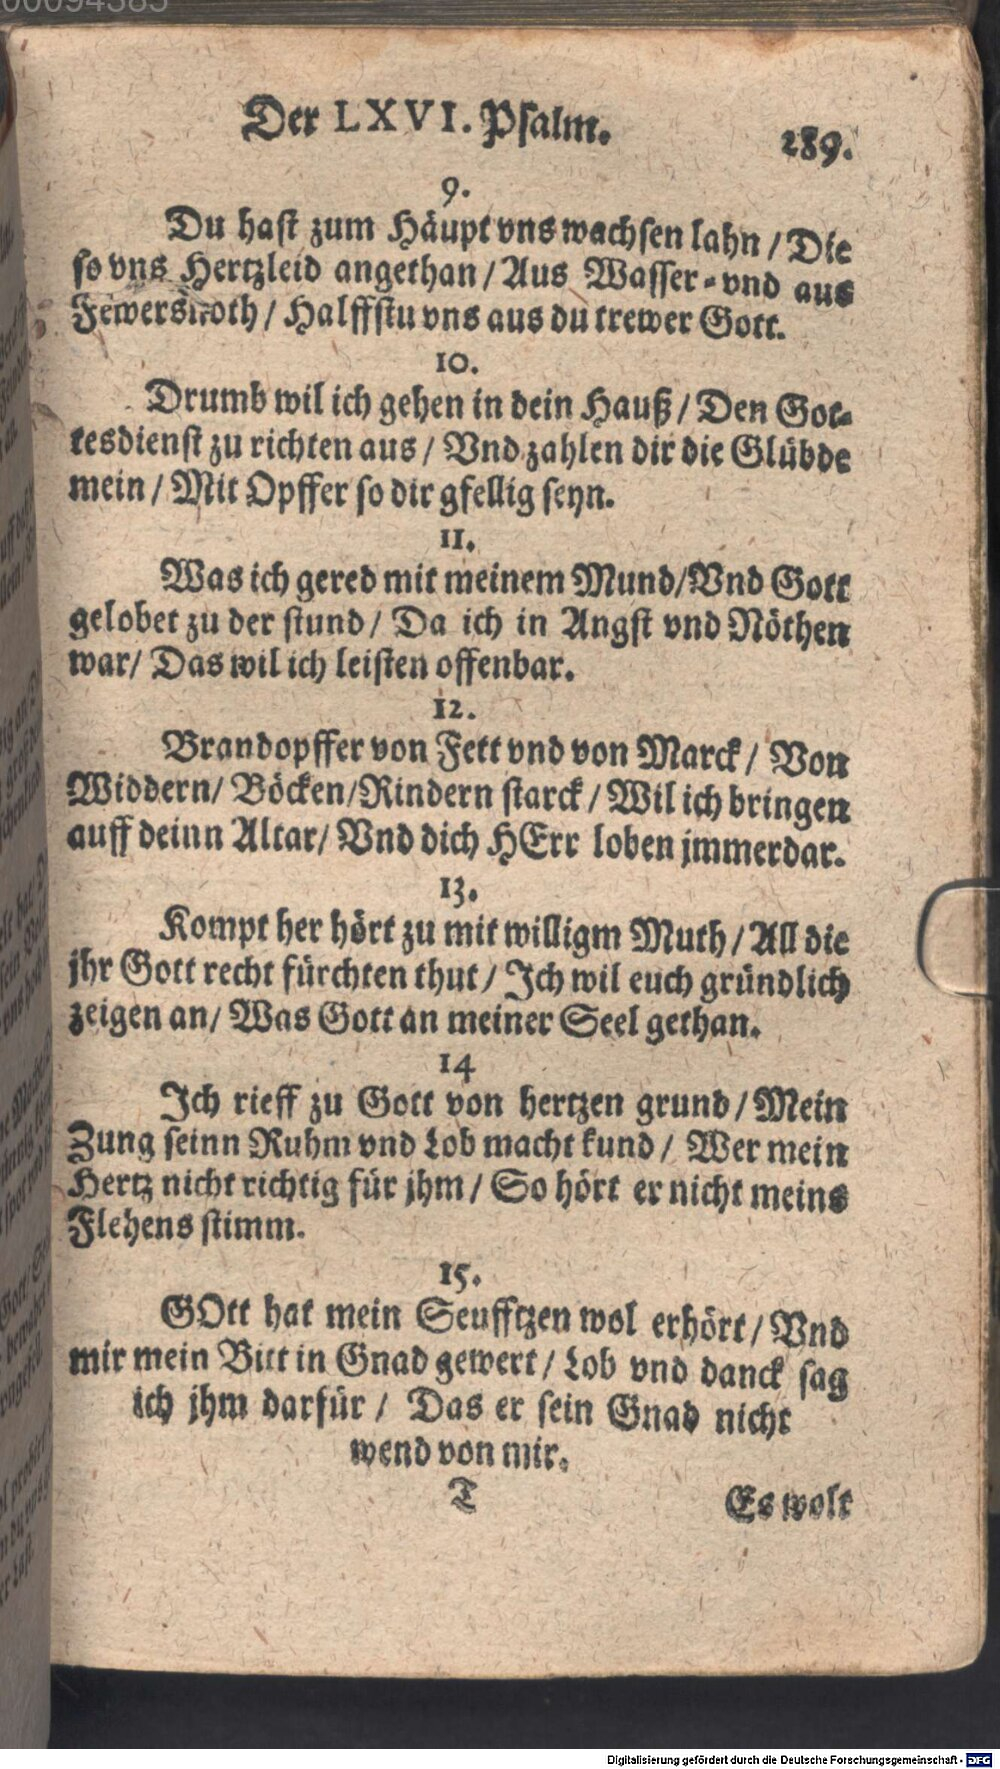 00094385
Der LXVI. Psalm. 289.
9.
Du hast zum Häupt vns wachsen lahn / Die
so vns Hertzleid angethan / Aus Wasser- vnd aus
Fewersnoth / Halffstu vns aus du trewer Gott.
10.
Drumb wil ich gehen in dein Hauß / Den Got-
tesdienst zu richten aus / Vnd zahlen dir die Glübde
mein / Mit Opffer so dir gfellig seyn.
11.
Was ich gered mit meinem Mund / Vnd Gott
gelobet zu der stund / Da ich in Angst vnd Nöthen
war / Das wil ich leisten offenbar.
12.
Brandopffer von Fett vnd von Marck / Von
Widdern / Böcken / Rindern starck / Wil ich bringen
auff deinn Altar / Vnd dich HErr loben jmmerdar.
13.
Kompt her hört zu mit willigm Muth / All die
jhr Gott recht fürchten thut / Ich wil euch gründlich
zeigen an / Was Gott an meiner Seel gethan.
14
Ich rieff zu Gott von hertzen grund / Mein
Zung seinn Ruhm vnd Lob macht kund / Wer mein
Hertz nicht richtig für jhm / So hört er nicht meins
Flehens stimm.
15.
GOtt hat mein Seufftzen wol erhört / Vnd
mir mein Bitt in Gnad gewert / Lob vnd danck sag
ich jhm darfür / Das er sein Gnad nicht
wend von mir.
T Es wolt
Digitalisierung gefördert durch die Deutsche Forschungsgemeinschaft - DFG